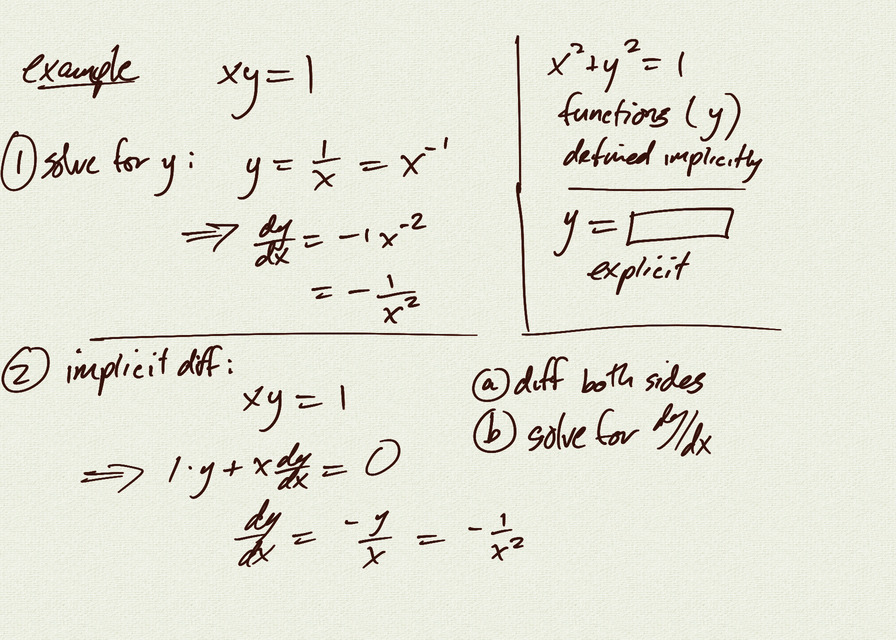 example xy = 1
① solve for y: y = 1/x = x^-1
⟹ dy/dx = -1x^-2
= - 1/x^2
x^2 + y^2 = 1
functions (y)
defined implicitly
y = 
explicit
② implicit diff:
xy = 1
⟹ 1·y + x dy/dx = 0
dy/dx = -y/x = - 1/x^2
ⓐ diff both sides
ⓑ solve for dy/dx